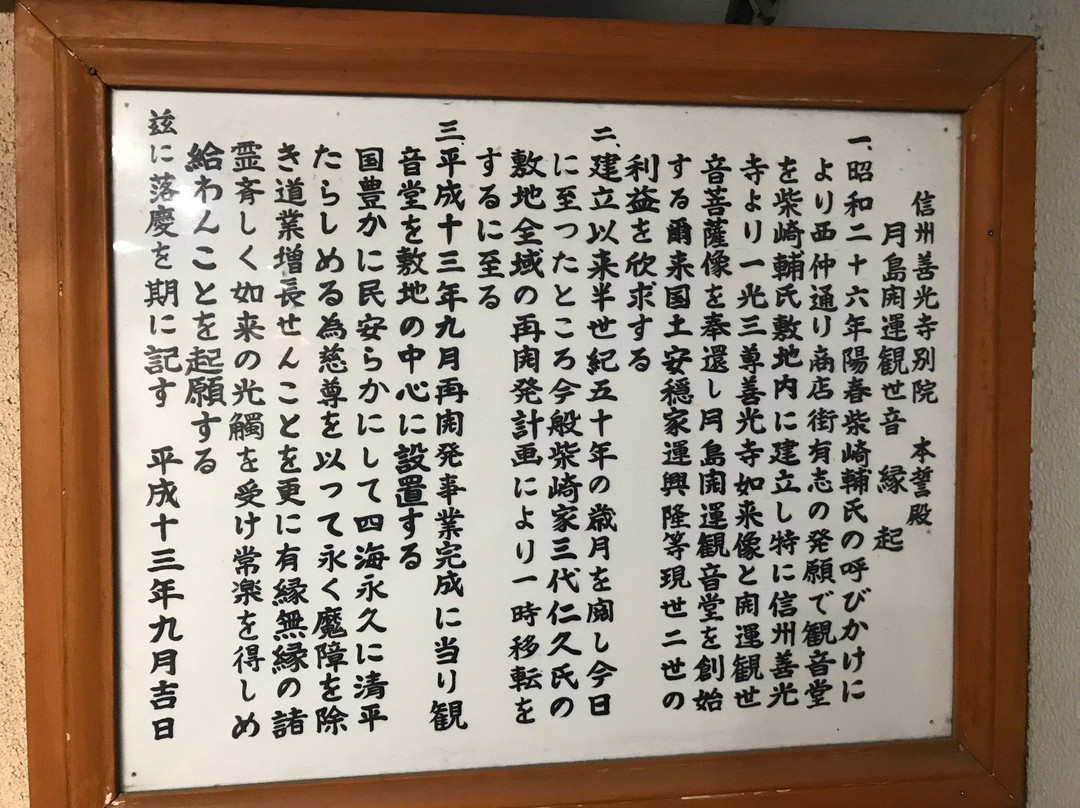 信州善光寺別院 本誓殿
月島開運観世音 縁起
一、昭和二十六年陽春柴崎輔氏の呼びかけに
より西仲通り商店街有志の発願で観音堂
を柴崎輔氏敷地内に建立し特に信州善光
寺より一光三尊善光寺如来像と開運観世
音菩薩像を奉還し月島開運観音堂を創始
する爾来国土安穏家運興隆等現世二世の
利益を欣求する
二、建立以来半世紀五十年の歳月を閲し今日
に至ったところ今般柴崎家三代仁久氏の
敷地全域の再開発計画により一時移転を
するに至る
三、平成十三年九月再開発事業完成に当り観
音堂を敷地の中心に設置する
国豊かに民安らかにして四海永久に清平
たらしめる為慈尊を以って永く魔障を除
き道業増長せんことを更に有縁無縁の諸
霊斉しく如来の光觸を受け常楽を得しめ
給わんことを起願する
茲に落慶を期に記す 平成十三年九月吉日